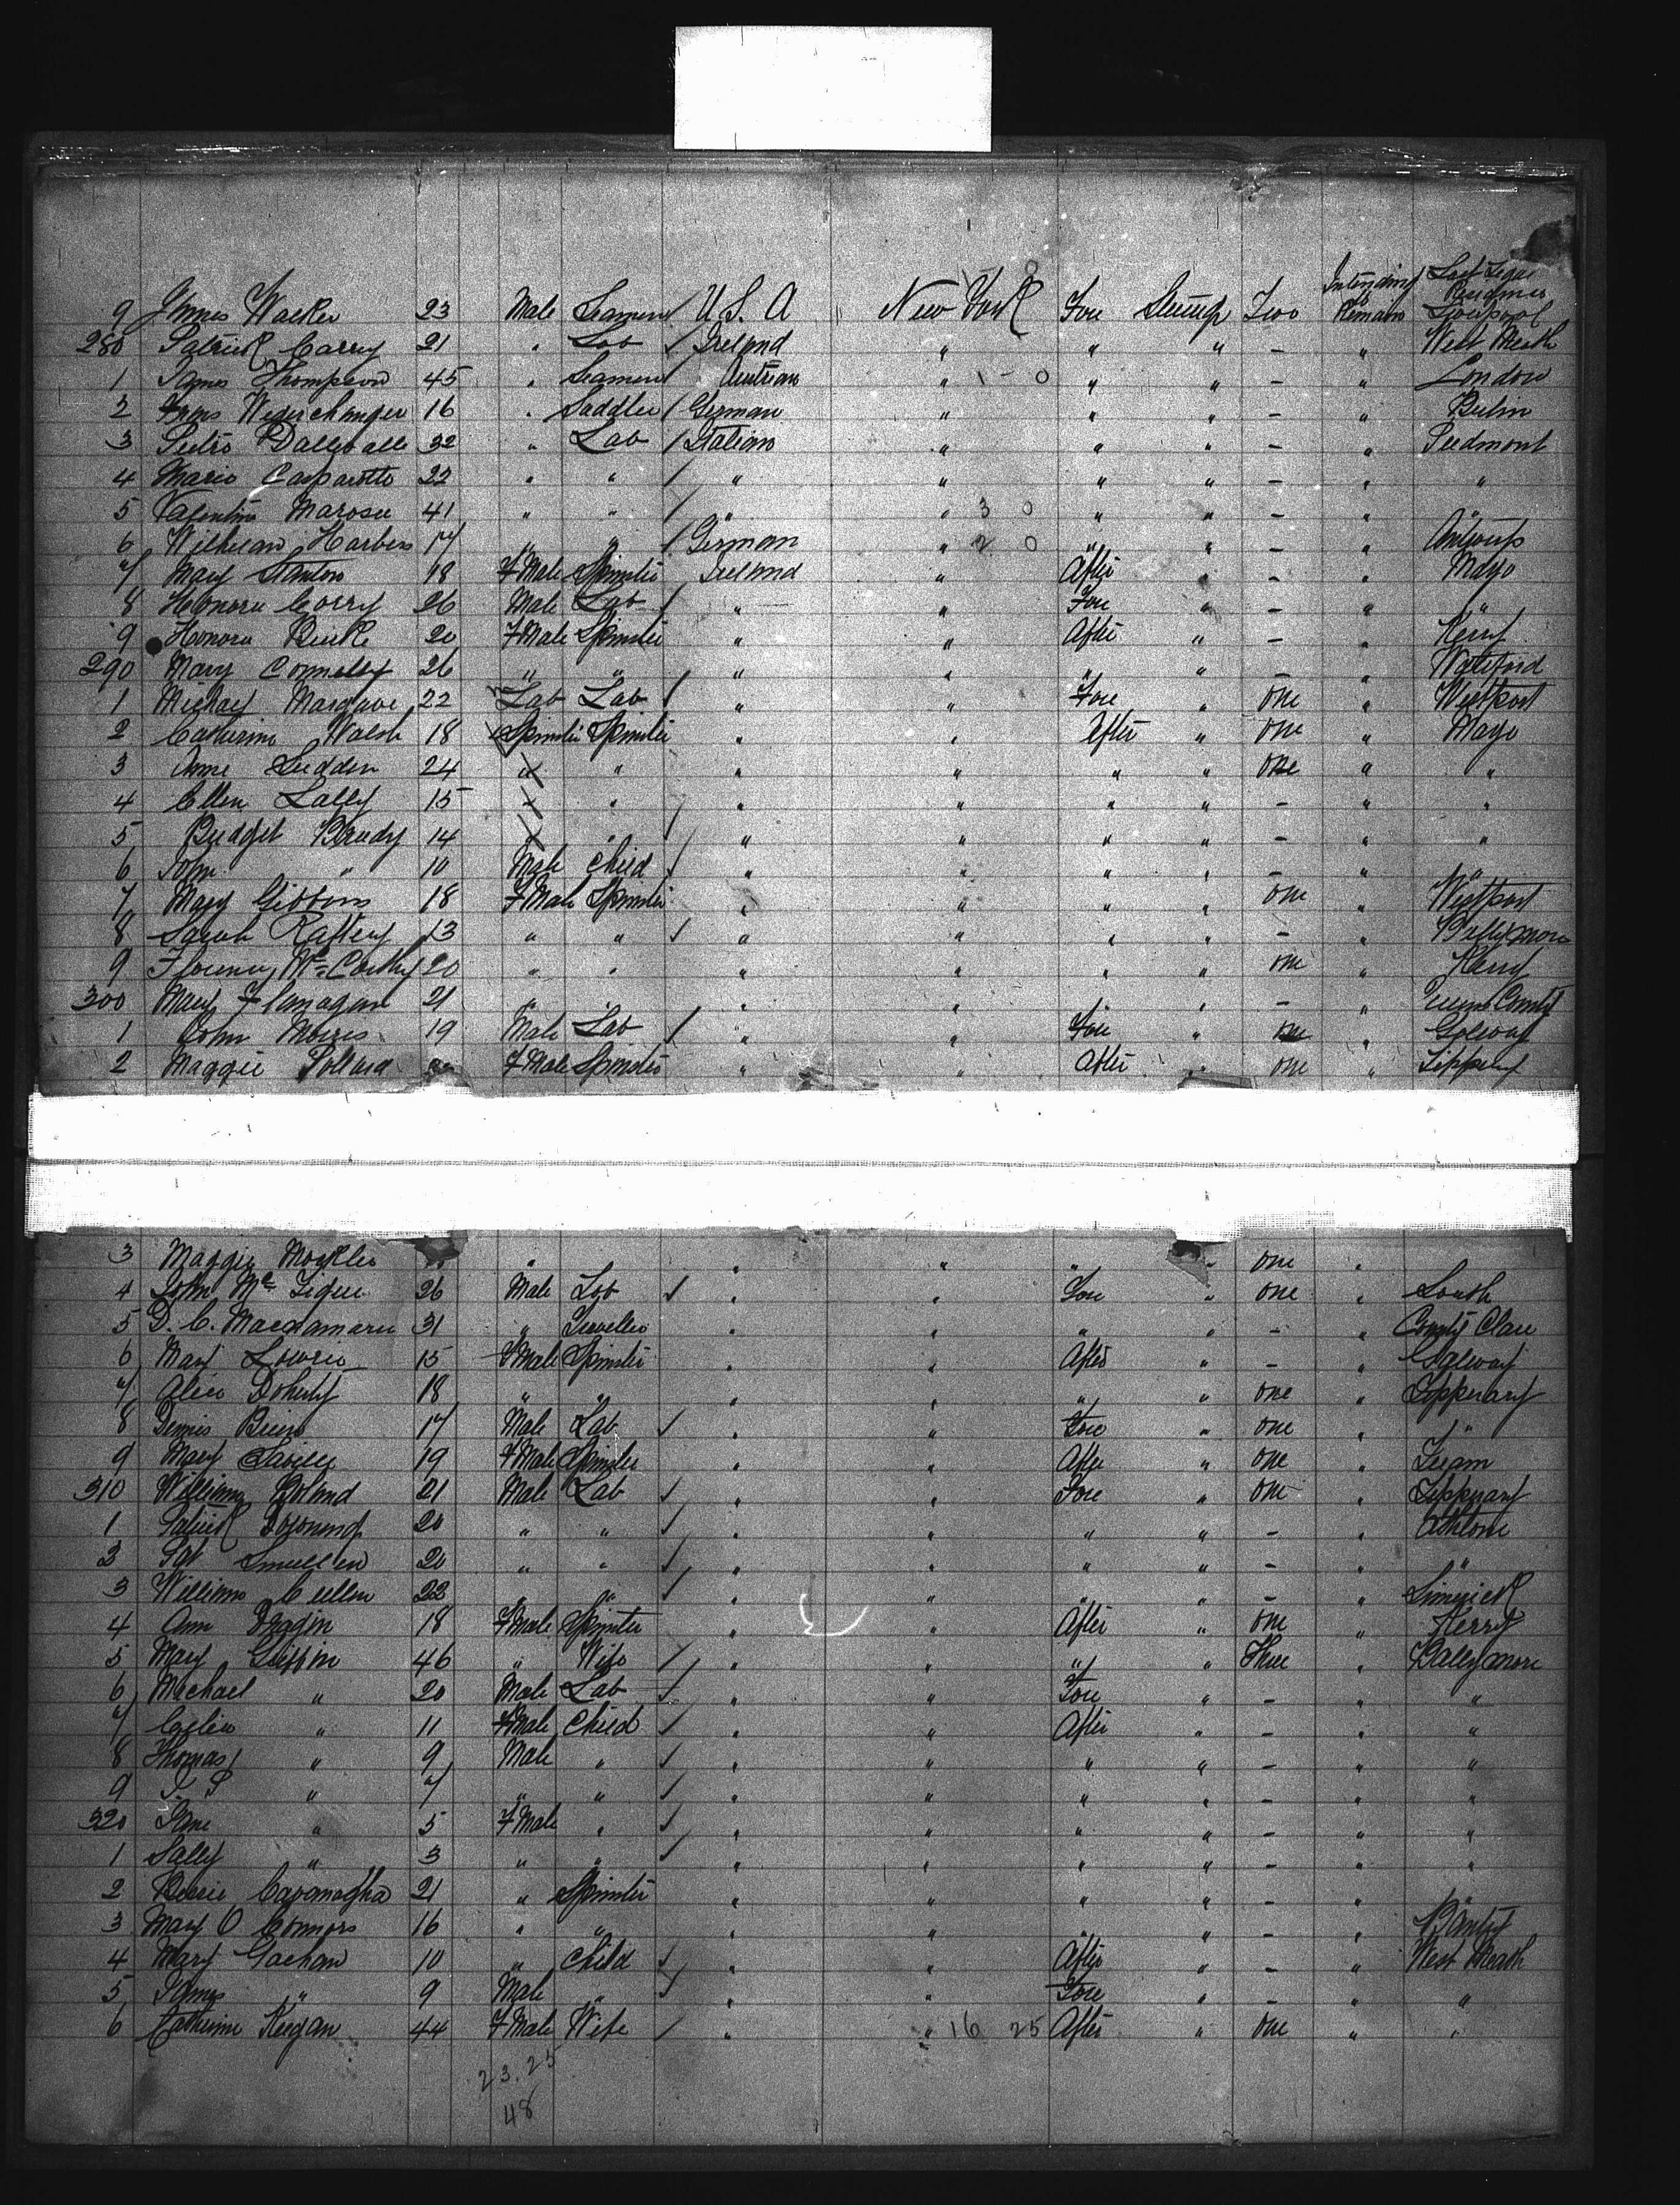 Intending to Remain Last Legal Residence
9 James Walker 23 Male Seaman / U. S. A New York Fore Steerage Two Liverpool
280 Patrick Carry 21 " Lab / Ireland " " " - " West Meath
1 James Thompson 45 " Seaman / Austrian " 1 - 0 " " - " London
2 Weger 16 " Saddler / German " " " - " Berlin
3 Pietro 32 " Lab / Italian " " " - " Piedmont
4 Mario Casparotto 22 " " / " " " " - " "
5 Valentino Marosee 41 " " / " " 3 0 " " - " "
6 Harbers 17 " " / German " 2 0 " " - "
7 Mary Stanton 18 F Male Spinster Ireland " After " - " Mayo
8 Honora Corry 26 Male Lab / " " Fore " - " "
9 Honora Burke 20 F Male Spinster " " After " - " Kerry
290 Mary Connelly 26 " " / " " " " - " Waterford
1 Michael 22 Lab Lab / " " Fore " one " Westport
2 Catherine Walsh 18 Spinster Spinster " " After " one " Mayo
3 Anne Ludden 24 " " " " " " one " "
4 Ellen Lally 15 " " / " " " " - " "
5 Bridget Brady 14 " " / " " " " - " "
6 John " 10 Male Child / " " " " - " "
7 Mary Gibbons 18 F Male Spinster " " " " one " Westport
8 Sarah Raftery 13 " " / " " " " - " Ballymore
9 Florence McCarthy 20 " " " " " " one " Kerry
300 Mary Flanagan 21 " " " " " - " Queens County
1 John Morris 19 Male Lab / " " Fore " one " Galway
2 Maggie F Male Spinster " " After " one " Tipperary
3 Maggie Mockler " " " " " one "
4 John McTigue 26 Male Lab / " " Fore " one " Louth
5 D. C. Macnamara 31 " Traveller " " " " - " County Clare
6 Mary Lowrie 15 F Male Spinster " " After " - " Galway
7 Alice Doherty 18 " " " " " " one " Tipperary
8 Dennis 17 Male Lab / " " Fore " one " "
9 Mary 19 F Male Spinster " " After " one " Tuam
310 William Boland 21 Male Lab / " " Fore " one " Tipperary
1 Patrick 20 " " / " " " " - " Athlone
2 Pat Smullen 20 " " / " " " " - " "
3 William Cullen 22 " " / " " " " - " Limerick
4 Ann 18 F Male Spinster " " After " one " Kerry
5 Mary Griffin 46 " Wife / " " " " Three " Ballymore
6 Michael " 20 Male Lab / " " Fore " - " "
7 Celia " 11 F Male Child / " " After " - " "
8 Thomas " 9 Male " / " " " " - " "
9 " 7 " " / " " " " - " "
320 Jane " 5 F Male " / " " " " - " "
1 Sally " 3 " " / " " " " - " "
2 Bessie Cavanagha 21 " Spinster " " " " - " "
3 Mary O Connors 16 " " " " " " - " Bantry
4 Mary Gachan 10 " Child / " " After " - " West Meath
5 James " 9 Male " / " " Fore " - " "
6 Catherine Keegan 44 F Male Wife / " " 16 25 After " one " "
23.25
48